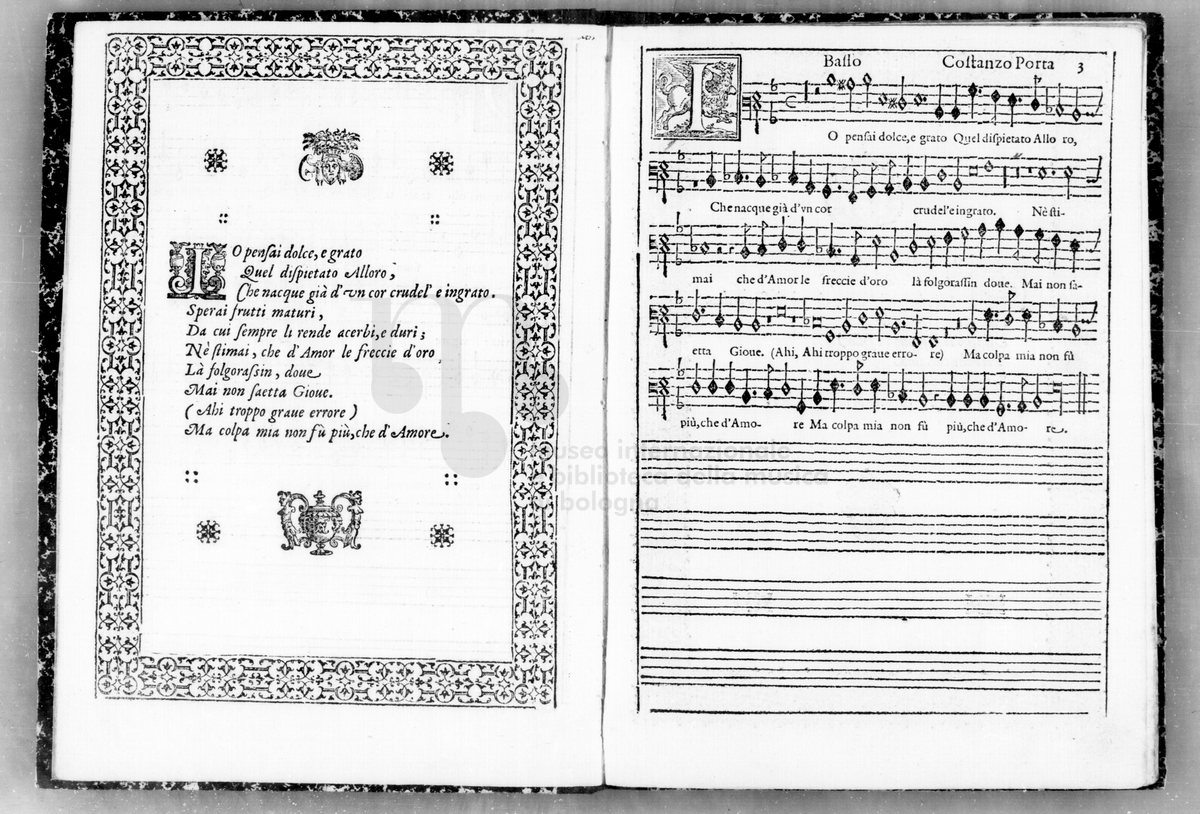 IO pensai dolce, e grato
Quel dispietato Alloro,
Che nacque già d'vn cor crudel' e ingrato.
Sperai frutti maturi,
Da cui sempre li rende acerbi, e duri;
Nè stimai, che d'Amor le freccie d'oro,
Là folgorassin, doue
Mai non saetta Gioue.
(Ahi troppo graue errore)
Ma colpa mia non fù più, che d'Amore.
Basso Costanzo Porta 3
IO pensai dolce, e grato Quel dispietato Allo ro,
Che nacque già d'vn cor crudel'e ingrato. Nè sti-
mai che d'Amor le freccie d'oro là folgorassin doue. Mai non sa-
etta Gioue. (Ahi, Ahi troppo graue erro- re) Ma colpa mia non fù
più, che d'Amo- re Ma colpa mia non fù più, che d'Amo- re.
museo internazionale
e biblioteca della musica
di bologna